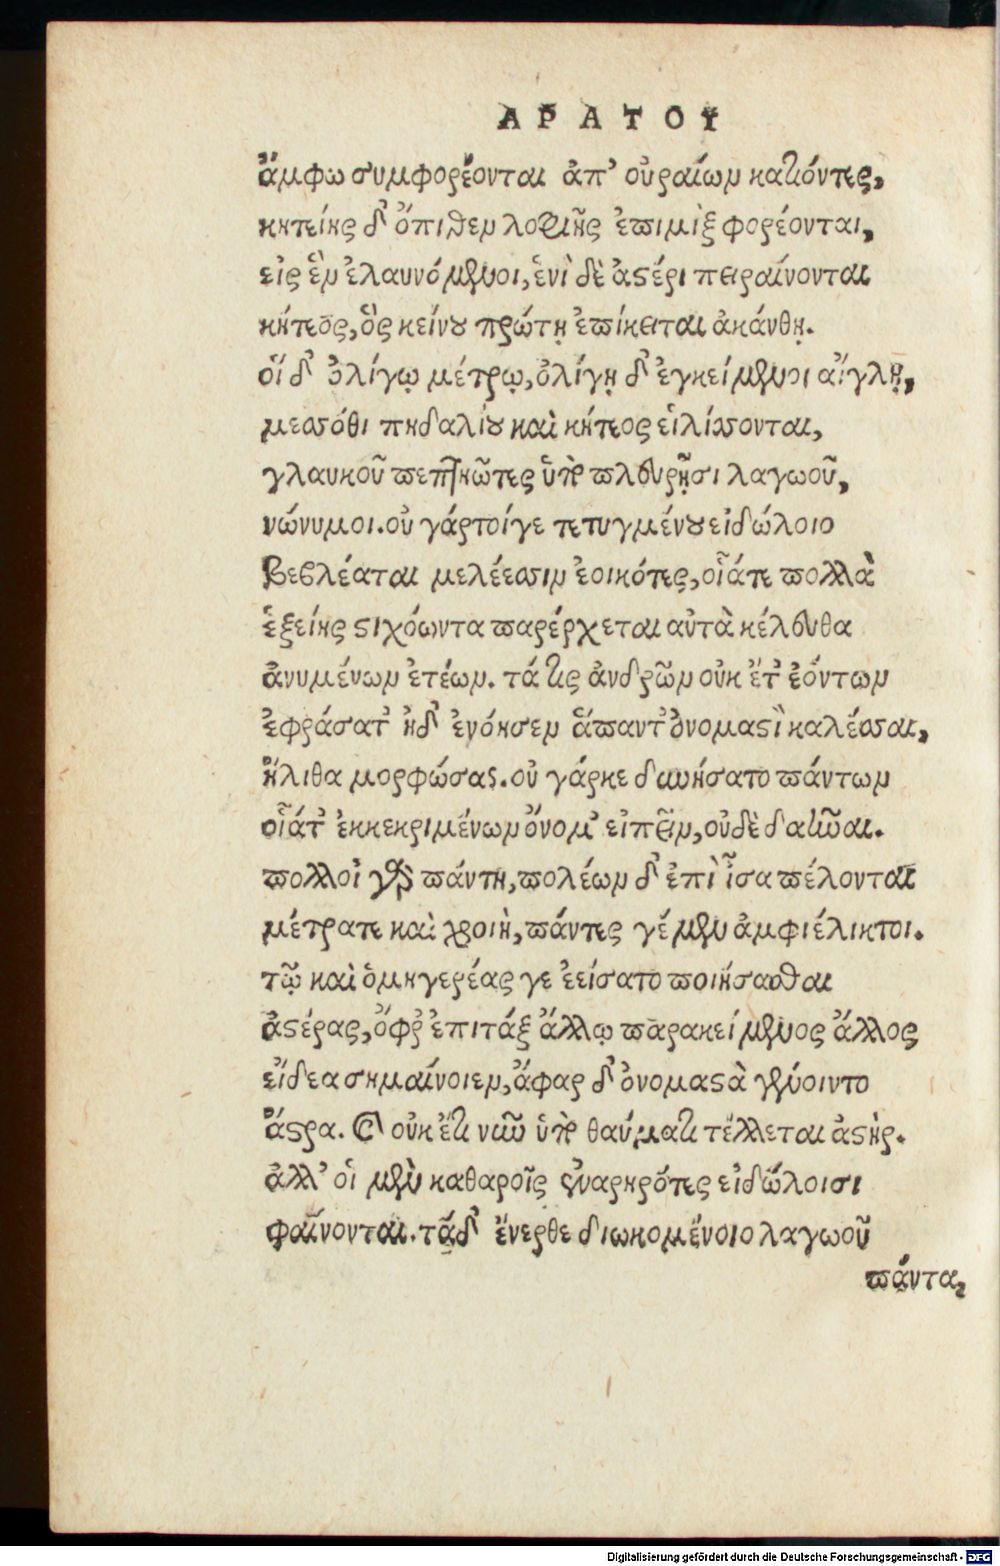 ΑΡΑΤΟΥ
ἄμφω συμφορέονται ἀπ' οὐραίων κατιόντες,
κητείης δ' ὄπιθεν λοφιῆς ἐπιμὶξ φορέονται,
εἰς ἓν ἐλαυνόμενοι, ἑνὶ δὲ ἀστέρι πειραίνονται
κήτεος, ὃς κείνου πρώτῃ ἐπίκειται ἀκάνθῃ.
οἵ δ' ὀλίγῳ μέτρῳ, ὀλίγῃ δ' ἐγκείμενοι αἴγλῃ,
μεσσόθι πηδαλίου καὶ κήτεος εἱλίσσονται,
γλαυκοῦ πεπτηῶτες ὑπὸ πλευρῇσι λαγωοῦ,
νώνυμοι. οὐ γάρ τοίγε τετυγμένου εἰδώλοιο
βεβλέαται μελέεσσιν ἐοικότες, οἷά τε πολλὰ
ἑξείης στιχόωντα παρέρχεται αὐτὰ κέλευθα
ἀνυμένων ἐτέων. τά τις ἀνδρῶν οὐκ ἔτ' ἐόντων
ἐφράσατ' ἠδ' ἐνόησεν ἅπαντ' ὀνομαστὶ καλέσσαι,
ἤλιθα μορφώσας. οὐ γάρ κε δυνήσατο πάντων
οἷάτ' ἐκκεκριμένων ὄνομ' εἰπεῖν, οὐδὲ δαῆναι.
πολλοὶ γὰρ πάντη, πολέων δ' ἐπὶ ἶσα πέλονται
μέτρατε καὶ χροιὴ, πάντες γέ μεν ἀμφιέλικτοι.
τῷ καὶ ὁμηγερέας γε ἐείσατο ποιήσασθαι
ἀστέρας, ὄφρ' ἐπιτάξ ἄλλῳ παρακείμενος ἄλλος
εἴδεα σημαίνοιεν, ἄφαρ δ' ὀνομαστὰ γένοιντο
ἄστρα. Καὶ οὐκ ἔτι νῦν ὑπὸ θαύματι τέλλεται ἀστήρ.
ἀλλ' οἱ μὲν καθαροῖς ἐναρηρότες εἰδώλοισι
φαίνονται. τά δ' ἔνερθε διωκομένοιο λαγωοῦ
πάντα,
Digitalisierung gefördert durch die Deutsche Forschungsgemeinschaft - DFG